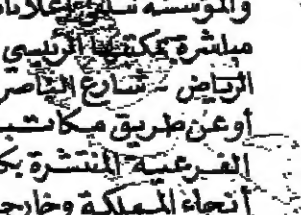 والمؤسسة تتلقى اعلانات
مباشرة بمكتبها الرئيسي
الرياض - شارع الناصر
أوعن طريق مكاتب
الفرعية المنتشرة بك
أنحاء المملكة وخارجـ